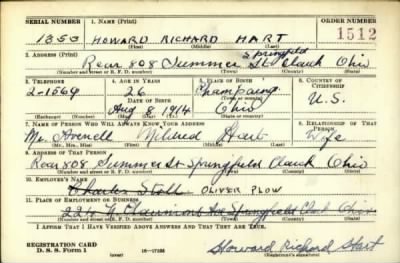 SERIAL NUMBER 1. NAME (Print) ORDER NUMBER
1353 HOWARD RICHARD HART 1512
(First) (Middle) (Last)
2. ADDRESS (Print)
Rear 808 Summer St Springfield Clark Ohio
(Number and street or R. F. D. number) (Town) (County) (State)
3. TELEPHONE 4. AGE IN YEARS 5. PLACE OF BIRTH 6. COUNTRY OF CITIZENSHIP
2-1569 26 Champaign
DATE OF BIRTH (Town or county)
Aug 8, 1914 Ohio U.S.
(Exchange) (Number) (Mo.) (Day) (Yr.) (State or country)
7. NAME OF PERSON WHO WILL ALWAYS KNOW YOUR ADDRESS 8. RELATIONSHIP OF THAT PERSON
Mildred Hart Wife
(Mr., Mrs., Miss) (First) (Middle) (Last)
9. ADDRESS OF THAT PERSON
Rear 808 Summer St Springfield Clark Ohio
(Number and street or R. F. D. number) (Town) (County) (State)
10. EMPLOYER'S NAME
Charles Stoll OLIVER PLOW
11. PLACE OF EMPLOYMENT OR BUSINESS
Ave Springfield Clark Ohio
(Number and street or R. F. D. number) (Town) (County) (State)
I AFFIRM THAT I HAVE VERIFIED ABOVE ANSWERS AND THAT THEY ARE TRUE.
REGISTRATION CARD
D. S. S. Form 1 (over) Howard Richard Hart
(Registrant's signature)